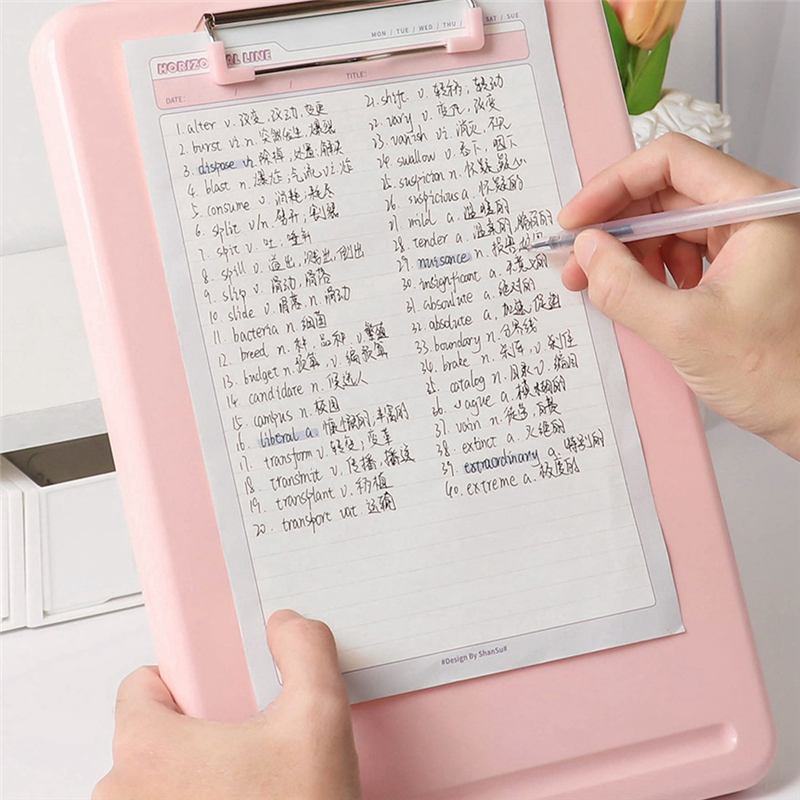 MON / TUE / WED / THU / SAT / SUE
HORIZO AL LINE
DATE: / / TITLE:
1. alter v. 改变, 改动, 变更
2. burst vi n. 突然发生, 爆裂
3. dispose vi. 除掉; 处置; 解决
4. blast n. 爆炸; 气流 vi 炸
5. consume v. 消耗; 耗尽
6. split v/n. 劈开; 割裂
7. spit v. 吐, 唾弃
8. spill v. 溢出, 溅出, 倒出
9. slip v. 滑动, 滑落
10. slide v. 滑落 n. 滑动
11. bacteria n. 细菌
12. breed n. 种, 品种 v. 繁殖
13. budget n. 预算, v. 编预算
14. candidate n. 候选人
15. campus n. 校园
16. liberal a. 慷慨的; 丰富的
17. transform v. 转变; 变革
18. transmit v. 传播, 播送
19. transplant v. 移植
20. transport vat. 运输
21. shift v. 转移; 转动
22. vary v. 变化, 改变
23. vanish vi. 消灭, 不见
24. swallow v. 吞下, 咽下
25. suspicion n. 怀疑
26. suspicious a. 怀疑的
27. mild a. 温暖的
28. tender a. 温柔的; 脆弱的
29. nuisance n. 损害
30. insignificant a. 无意义的
31. absolute a. 绝对的
32. absolute a. 加速, 促进
33. boundary n. 分界线
34. brake n. 刹车, v. 刹住
35. catalog n. 目录 v. 编目
36. vague a. 模糊的
37. vain n. 徒劳
38. extinct a. 灭绝的
39. extraordinary a. 特别的
40. extreme a. 极度的
#Design By ShanSu#